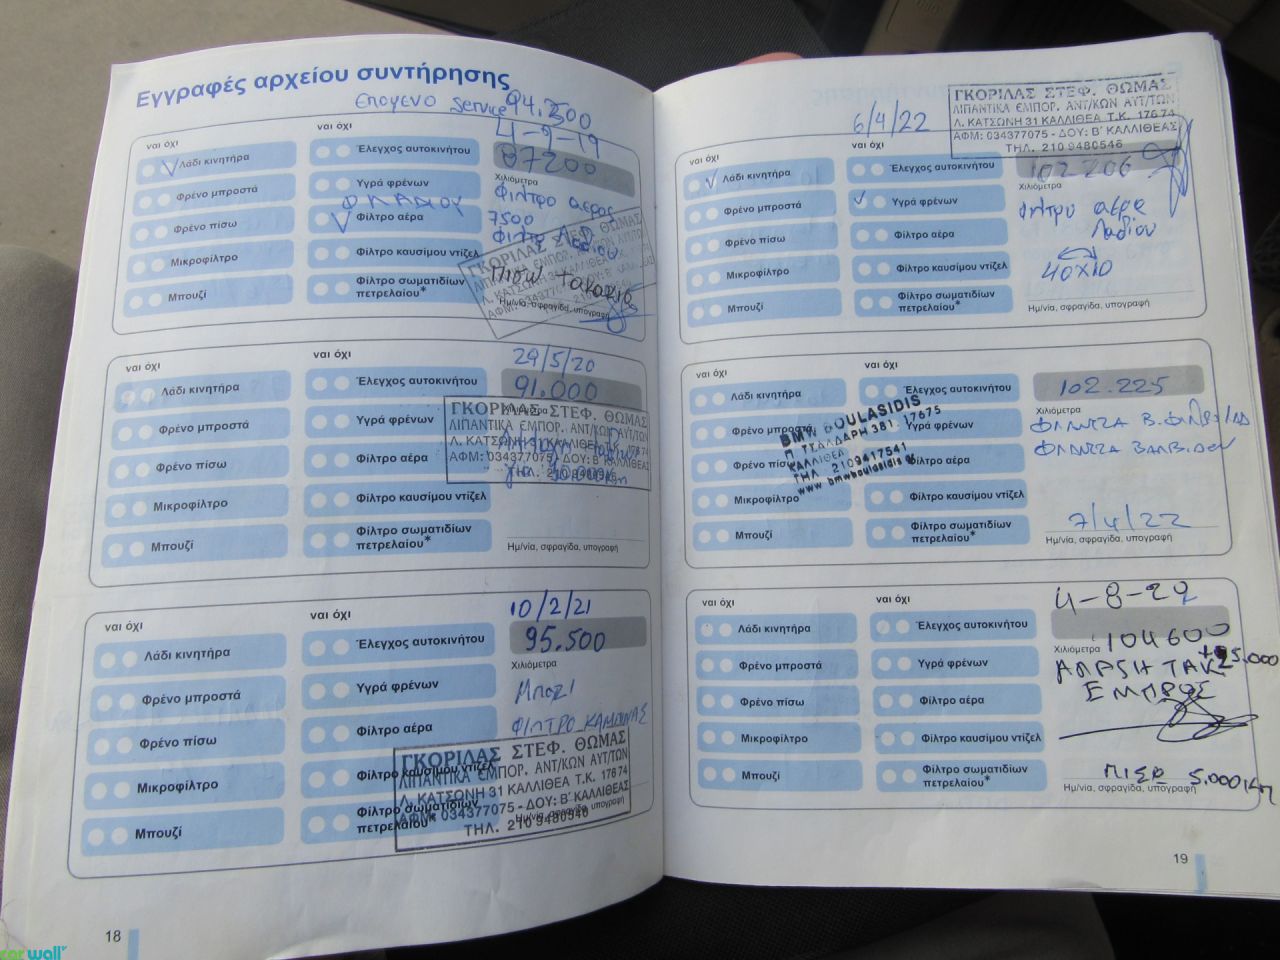 Εγγραφές αρχείου συντήρησης
service 94.200
4-9-19
ναι όχι
ναι όχι
87200
Λάδι κινητήρα
Έλεγχος αυτοκινήτου
Χιλιόμετρα
Φρένο μπροστά
Υγρά φρένων
Φίλτρο αερος
Φρένο πίσω
Φίλτρο αέρα
7500
Μικροφίλτρο
Φίλτρο καυσίμου ντίζελ
Μπουζί
Φίλτρο σωματιδίων
πετρελαίου*
ΓΚΟΡΙΛΑΣ ΣΤΕΦ. ΘΩΜΑΣ
Πισω τακακια
Ημ/νία, σφραγίδα, υπογραφή
ναι όχι
ναι όχι
29/5/20
91.000
Λάδι κινητήρα
Έλεγχος αυτοκινήτου
Χιλιόμετρα
Φρένο μπροστά
Υγρά φρένων
Φρένο πίσω
Φίλτρο αέρα
Μικροφίλτρο
Φίλτρο καυσίμου ντίζελ
Μπουζί
Φίλτρο σωματιδίων
πετρελαίου*
ΓΚΟΡΙΛΑΣ ΣΤΕΦ. ΘΩΜΑΣ
ΛΙΠΑΝΤΙΚΑ ΕΜΠΟΡ. ΑΝΤ/ΚΩΝ ΑΥΤ/ΤΩΝ
Λ. ΚΑΤΣΩΝΗ 31 ΚΑΛΛΙΘΕΑ Τ.Κ. 176 74
ΑΦΜ: 034377075 - ΔΟΥ: Β' ΚΑΛΛΙΘΕΑΣ
ΤΗΛ. 210 9480546
Ημ/νία, σφραγίδα, υπογραφή
ναι όχι
ναι όχι
10/2/21
95.500
Λάδι κινητήρα
Έλεγχος αυτοκινήτου
Χιλιόμετρα
Φρένο μπροστά
Υγρά φρένων
Μπουζι
Φρένο πίσω
Φίλτρο αέρα
ΦΙΛΤΡΟ ΚΑΜΠΙΝΑΣ
Μικροφίλτρο
Φίλτρο καυσίμου ντίζελ
Μπουζί
Φίλτρο σωματιδίων
πετρελαίου*
ΓΚΟΡΙΛΑΣ ΣΤΕΦ. ΘΩΜΑΣ
ΛΙΠΑΝΤΙΚΑ ΕΜΠΟΡ. ΑΝΤ/ΚΩΝ ΑΥΤ/ΤΩΝ
Λ. ΚΑΤΣΩΝΗ 31 ΚΑΛΛΙΘΕΑ Τ.Κ. 176 74
ΑΦΜ: 034377075 - ΔΟΥ: Β' ΚΑΛΛΙΘΕΑΣ
ΤΗΛ. 210 9480546
Ημ/νία, σφραγίδα, υπογραφή
18
6/4/22
ΓΚΟΡΙΛΑΣ ΣΤΕΦ. ΘΩΜΑΣ
ΛΙΠΑΝΤΙΚΑ ΕΜΠΟΡ. ΑΝΤ/ΚΩΝ ΑΥΤ/ΤΩΝ
Λ. ΚΑΤΣΩΝΗ 31 ΚΑΛΛΙΘΕΑ Τ.Κ. 176 74
ΑΦΜ: 034377075 - ΔΟΥ: Β' ΚΑΛΛΙΘΕΑΣ
ΤΗΛ. 210 9480546
ναι όχι
ναι όχι
102206
Λάδι κινητήρα
Έλεγχος αυτοκινήτου
Χιλιόμετρα
Φρένο μπροστά
Υγρά φρένων
Φιλτρο αερα
Λαδιου
Φρένο πίσω
Φίλτρο αέρα
Μικροφίλτρο
Φίλτρο καυσίμου ντίζελ
Μπουζί
Φίλτρο σωματιδίων
πετρελαίου*
Ημ/νία, σφραγίδα, υπογραφή
ναι όχι
ναι όχι
102.225
Λάδι κινητήρα
Έλεγχος αυτοκινήτου
Χιλιόμετρα
Φρένο μπροστά
Υγρά φρένων
ΦΛΑΝΤΖΑ
ΦΛΑΝΤΖΑ
Φρένο πίσω
Φίλτρο αέρα
Μικροφίλτρο
Φίλτρο καυσίμου ντίζελ
Μπουζί
Φίλτρο σωματιδίων
πετρελαίου*
BMW BOULASIDIS
Π. ΤΣΑΛΔΑΡΗ 381 - 17675
ΚΑΛΛΙΘΕΑ
ΤΗΛ. 2109417541
www.bmwboulasidis.gr
7/4/22
Ημ/νία, σφραγίδα, υπογραφή
ναι όχι
ναι όχι
4-8-22
104600
Λάδι κινητήρα
Έλεγχος αυτοκινήτου
Χιλιόμετρα
5.000
Φρένο μπροστά
Υγρά φρένων
ΤΑΚ
ΕΜΠΡΟΣ
Φρένο πίσω
Φίλτρο αέρα
Μικροφίλτρο
Φίλτρο καυσίμου ντίζελ
Μπουζί
Φίλτρο σωματιδίων
πετρελαίου*
ΠΙΣΩ 5.000
Ημ/νία, σφραγίδα, υπογραφή
19
car wall